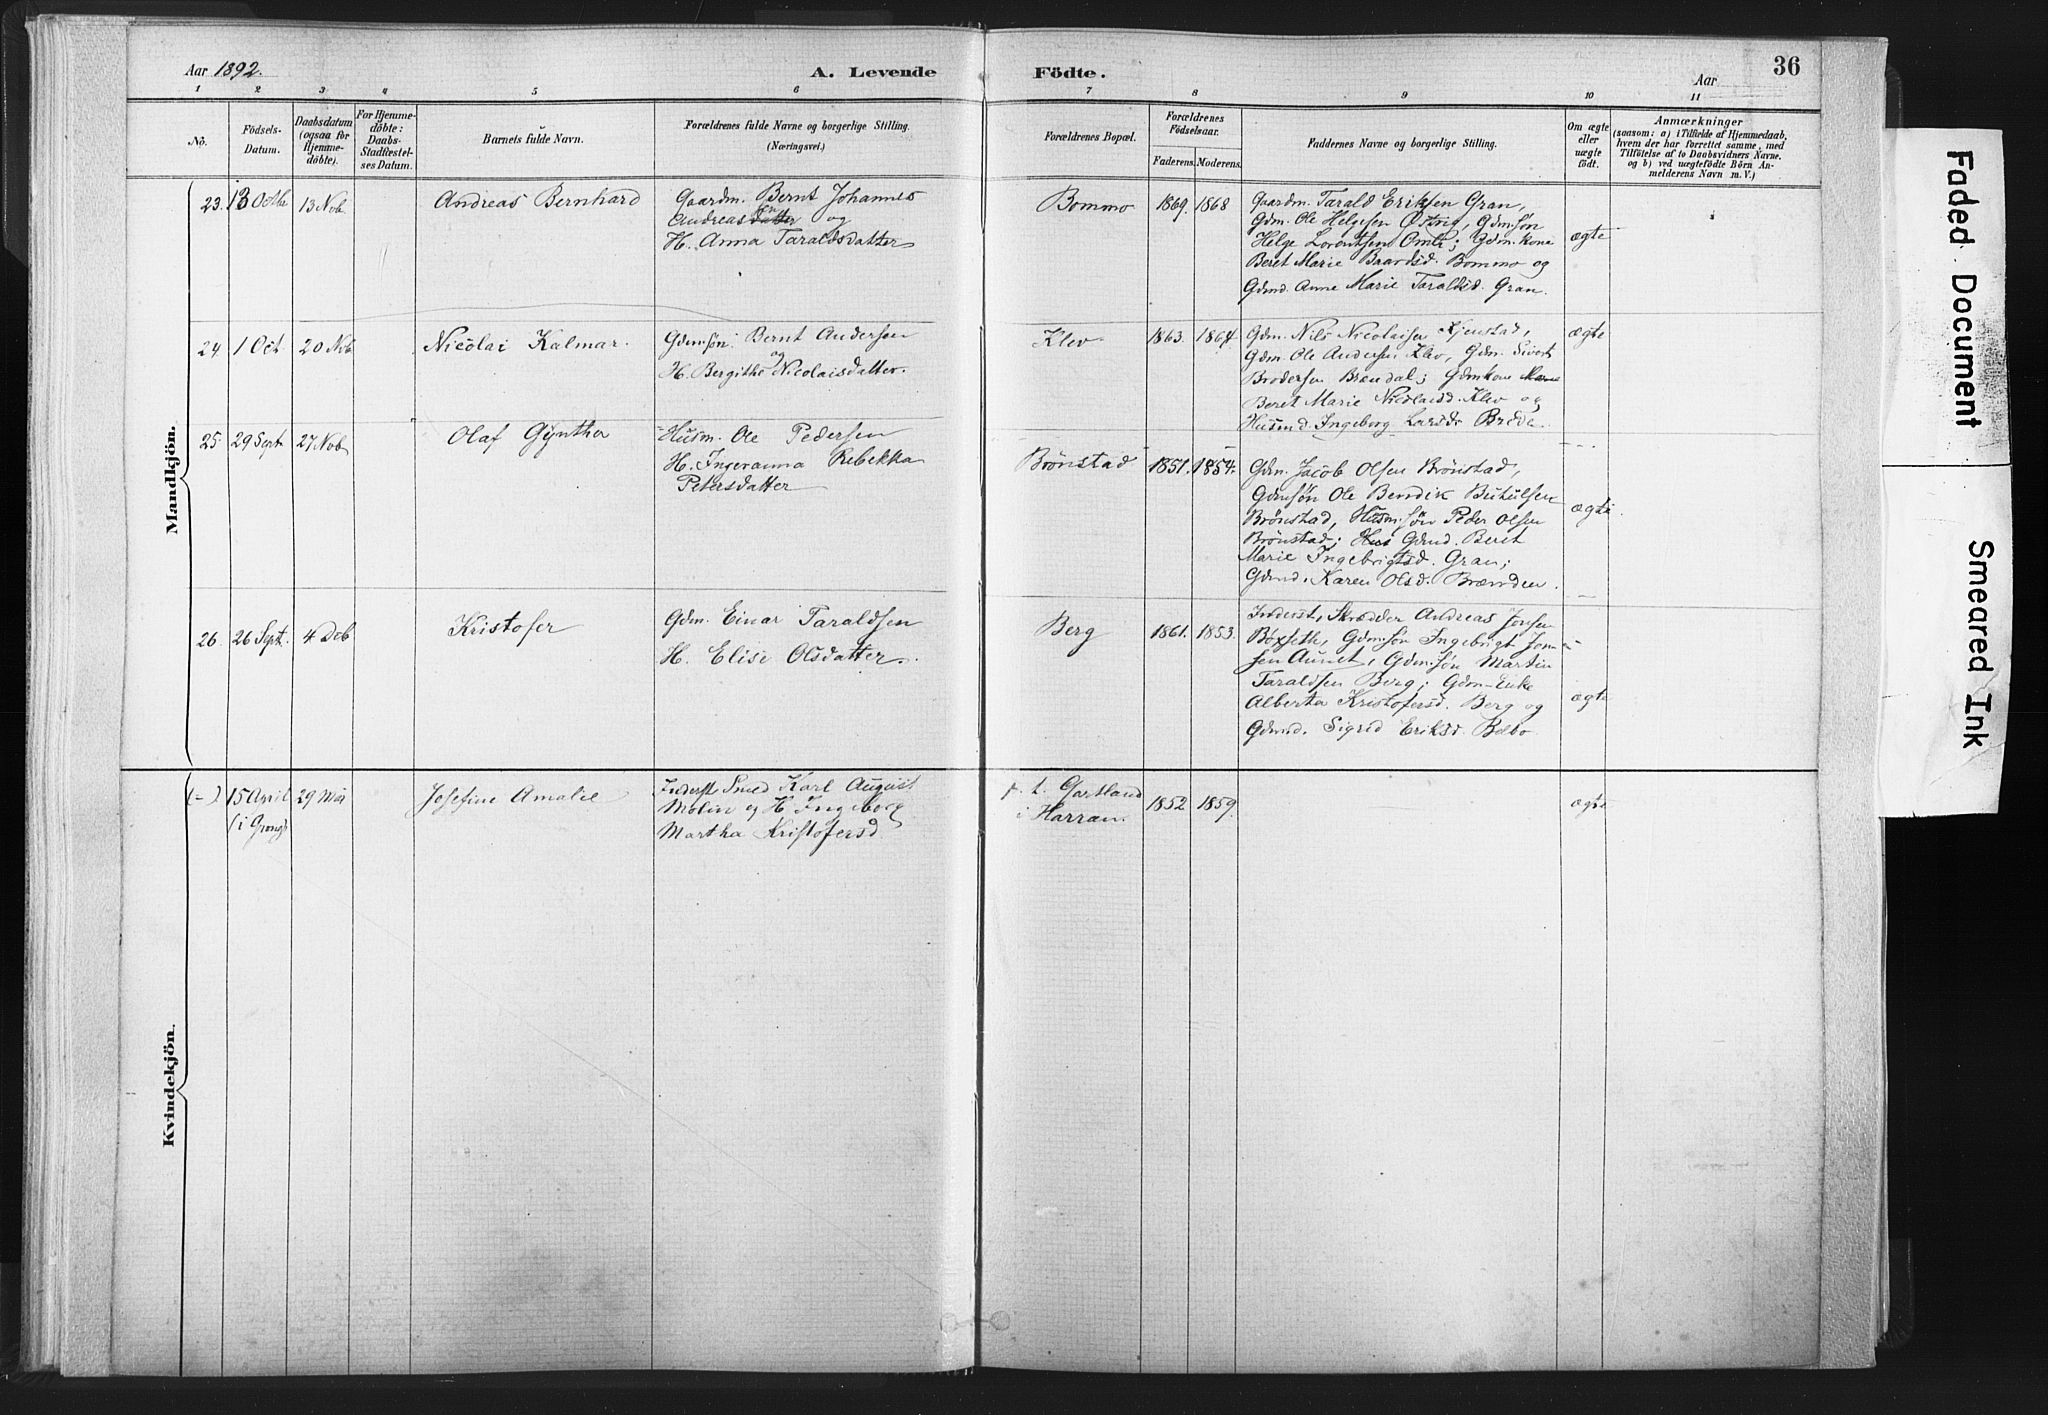 Aar 1892.
A. Levende Födte.
Aar
36
1 2 3 4 5 6 7 8 9 10 11
No.
Födsels-
Datum.
Daabsdatum
(ogsaa for
Hjemme-
döbte).
For Hjemme-
döbte:
Daabs-
Stadfæstel-
ses Datum.
Barnets fulde Navn.
Forældrenes fulde Navne og borgerlige Stilling.
(Næringsvei.)
Forældrenes Bopæl.
Forældrenes
Födselsaar.
Faderens. Moderens.
Faddernes Navne og borgerlige Stilling.
Om ægte
eller
uægte
födt.
Anmærkninger
(saasom: a) i Tilfælde af Hjemmedaab,
hvem der har forrettet samme, med
Tilföielse af to Daabsvidners Navne,
og b) ved uægtefödte Börn An-
melderens Navn m. V.)
Mandkjön.
23. 13 Octbr 13 Nob
Andreas Bernhard
Gaardm. Bernt Johannes
Andreassen og
H. Anna Taraldsdatter
Bommo
1869. 1868
Gaardm. Tarald Eriksen Gran,
Gdm. Ole Helgesen Østvig, Gdmsøn
Helge Lorentsen Omli; Gdm.kone
Beret Marie Baardsd. Bommo og
Gdmd. Anne Marie Taraldsd. Gran.
ægte
24 1 Oct. 20 Nob
Nicolai Kalmar.
Gdmsøn. Bernt Andersen
og
H. Bergithe Nicolaisdatter.
Klev
1863. 1864
Gdm. Nils Nicolaisen Kjenstad,
Gdm. Ole Andersen Klev, Gdm. Sivert
Brodersen Brændal; Gdmkone
Beret Marie Nicolaisd. Klev og
Husmd. Ingeborg Larsdr Brede.
ægte
25. 29 Sept. 27 Nob
Olaf Gynther
Husm. Ole Pedersen
H. Ingeranna Rebekka
Petersdatter
Brønstad
1851. 1854.
Gdm. Jacob Olsen Brønstad,
Gdmsøn Ole Bendik Buhulsen
Brønstad, Husm.søn Peder Olsen
Brønstad; Gdmd. Beret
Marie Ingebrigtsd. Gran;
Gdmd. Karen Olsd. Brænden.
ægte.
26. 26 Sept. 4 Deb
Kristofer
Gdm. Einar Taraldsen
H. Elise Olsdatter.
Berg
1861. 1853.
Inderst, Skrædder Andreas Jonsen
Bøxseth, Gdm.søn Ingebrigt Jon-
sen Aunet, Gdm.søn Martin
Taraldsen Berg; Gdm-Enke
Alberta Kristofersd. Berg og
Gdmd. Sigrid Eriksd. Belbo.
ægte
Kvindekjön.
(-) 15 April 29 Mai
(i Grong)
Josefine Amalie
Inderst Smed Karl August
Molin og H. Ingeborg
Martha Kristofersd.
p. t. Gartland
i Harran.
1852 1859.
ægte
Faded Document
Smeared Ink